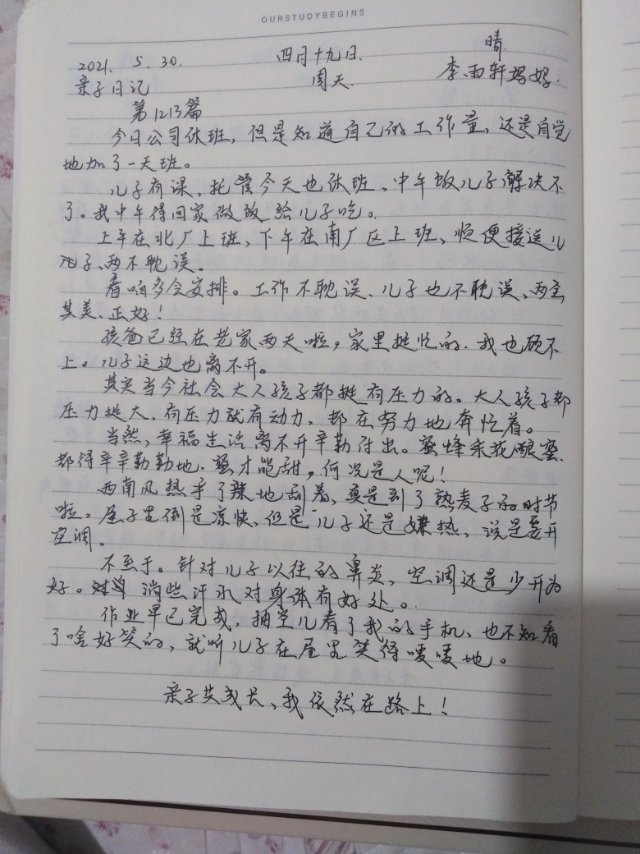 OURSTUDYBEGINS
2021. 5. 30. 四月十九日. 晴.
亲子日记 周天. 李雨轩妈妈.
第1213篇
今日公司休班，但是知道自己的工作量，还是自觉
地加了一天班。
儿子有课，托管今天也休班，中午饭儿子解决不
了。我中午得回家做饭给儿子吃。
上午在北厂上班，下午在南厂区上班，顺便接送儿
子、两不耽误。
看咱多会安排。工作不耽误、儿子也不耽误、两全
其美、正好！
孩爸已经在老家两天啦，家里挺忙的. 我也顾不
上。儿子这边也离不开。
其实当今社会大人孩子都挺有压力的。大人孩子都
压力挺大. 有压力就有动力，都在努力地奔忙着。
当然，幸福生活离不开辛勤付出。蜜蜂采花酿蜜
都得辛辛勤勤地，蜜才能甜，何况是人呢！
西南风热乎了辣地刮着，真是到了熟麦子的时节
啦。屋子里倒是凉快，但是儿子还是嫌热，说是要开
空调。
不至于。针对儿子以往的鼻炎，空调还是少开为
好。淌些汗水对身体有好处。
作业早已完成，抽空儿看了我的手机、也不知看
了啥好笑的，就听儿子在屋里笑得嗄嗄地。
亲子共成长、我依然在路上！